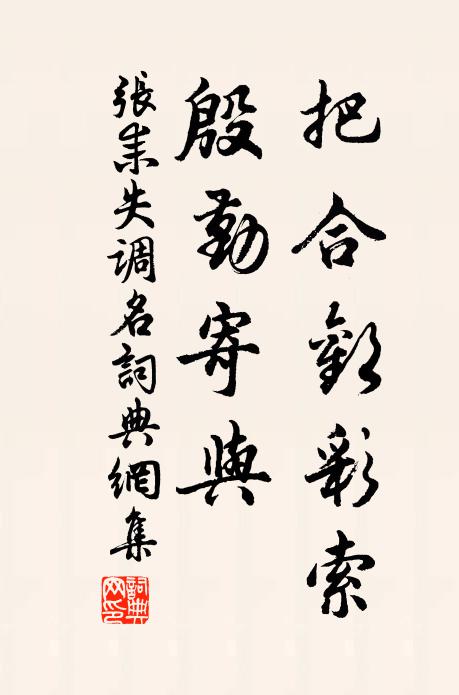 把合歡彩索
殷勤寄與
張耒失調名詞典網集
詞典網印